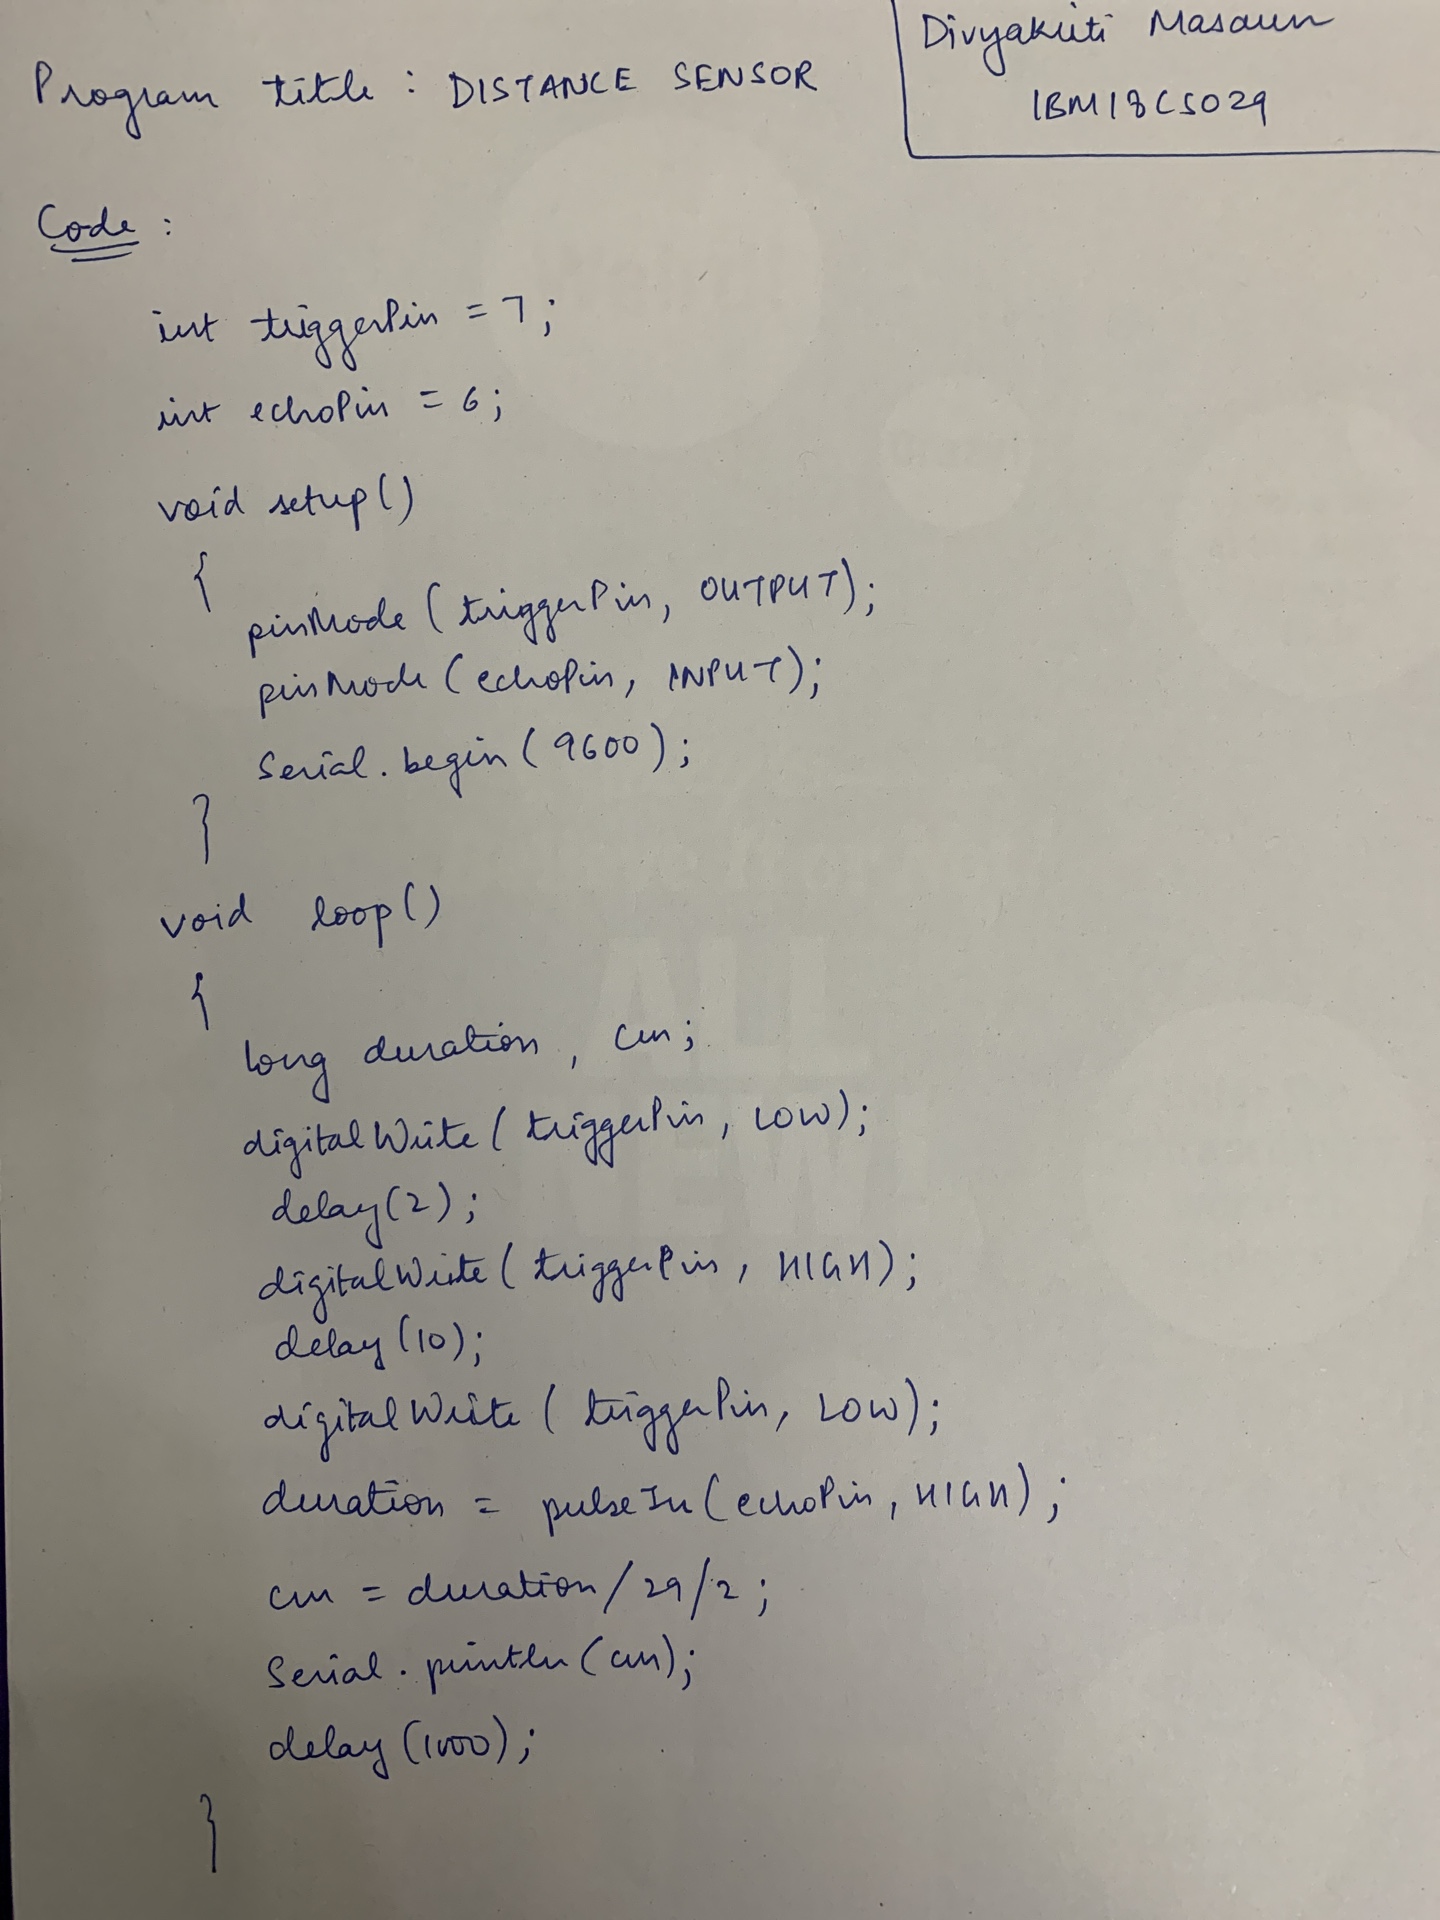 Divyakriti Masaun
1BM18CS029
Program title : DISTANCE SENSOR
Code :
int triggerPin = 7;
int echoPin = 6;
void setup()
{
pinMode (triggerPin, OUTPUT);
pinMode (echoPin, INPUT);
Serial.begin (9600);
}
void loop()
{
long duration, cm;
digitalWrite (triggerPin, LOW);
delay(2);
digitalWrite (triggerPin, HIGH);
delay (10);
digitalWrite (triggerPin, LOW);
duration = pulseIn (echoPin, HIGH);
cm = duration/29/2;
Serial.println (cm);
delay (1000);
}